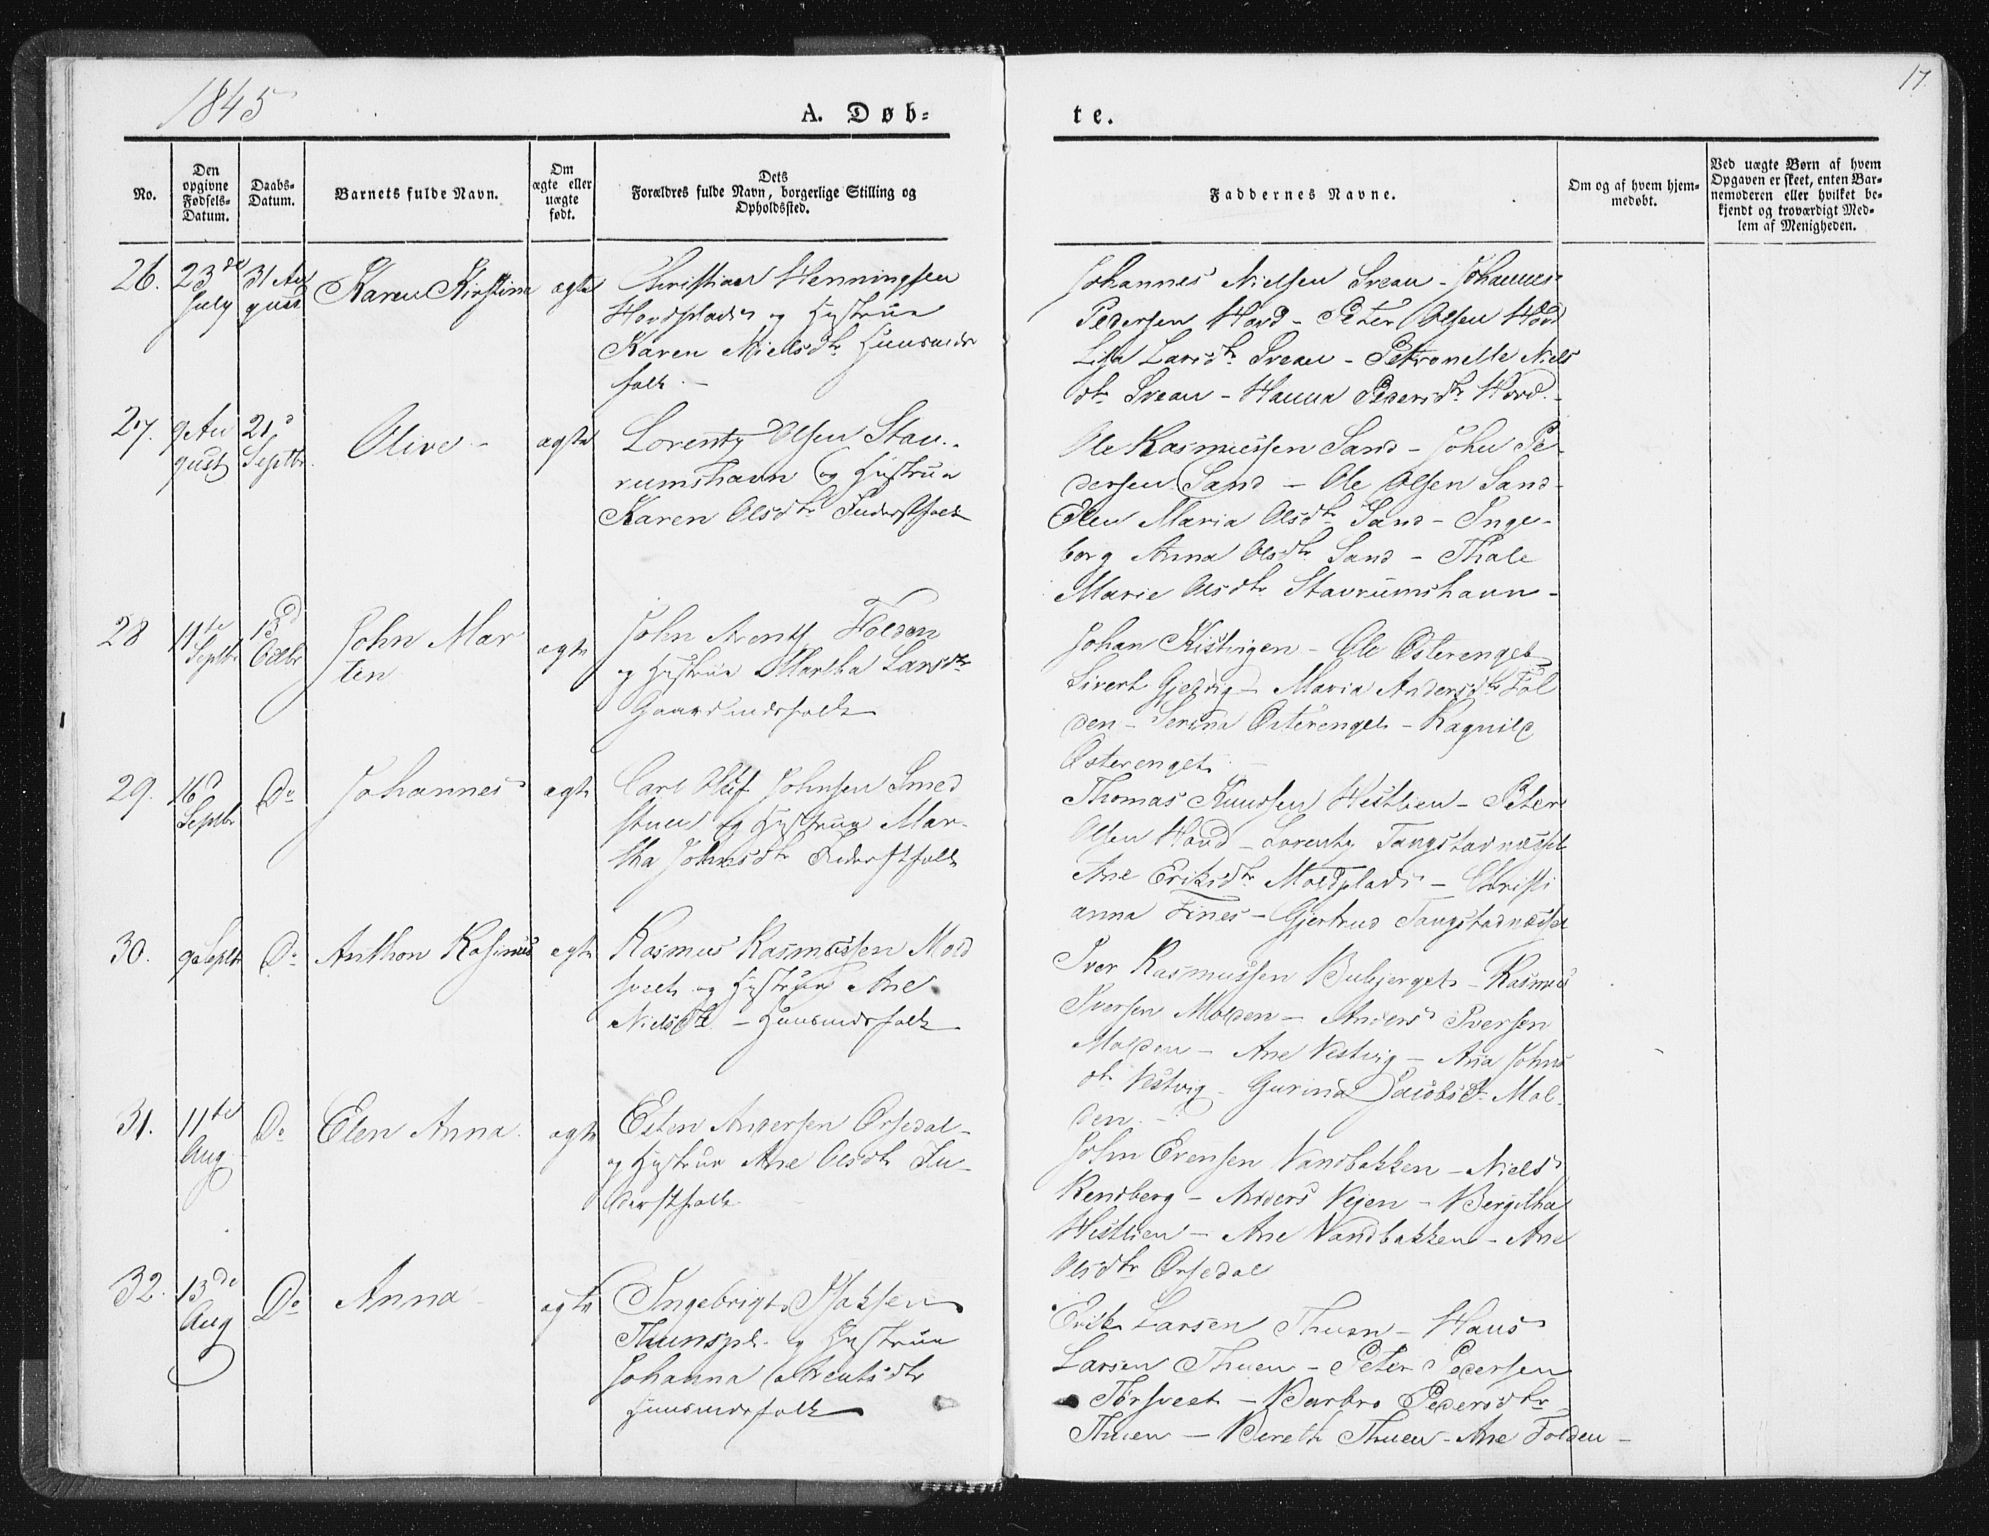 1845
17
A. Døb-
te.
No.
Den opgivne Fødsels-Datum.
Daabs-Datum.
Barnets fulde Navn.
Om ægte eller uægte født.
Dets Forældres fulde Navn, borgerlige Stilling og Opholdssted.
Faddernes Navne.
Om og af hvem hjem-medøbt.
Ved uægte Børn af hvem Opgaven er skeet, enten Bar-nemoderen eller hvilket be-kjendt og troværdigt Med-lem af Menigheden.
26.
23de July
31 August
Karen Kirstine
ægte
Christian Henningsen
Hovdplads og Hustrue
Karen Nielsdtr Huusmds
folk. -
Johannes Nielsen Svean - Johannes
Pedersen Hovd - Peter Olsen Hovd
Lisa Larsdtr Svean - Petronelle Niels
dtr Svean - Hanna Pedersdtr Hovd. -
27.
9 August
21d Septbr.
Olive -
ægte
Lorentz Olsen Stau-
rumshavn og Hustrue
Karen Olsdtr Inderstfolk
Ole Rasmussen Sand - John Pe-
dersen Sand - Ole Olsen Sand -
Elen Maria Olsdtr Sand - Inge-
borg Anna Olsdtr Sand - Thale
Marie Olsdtr Stavrumshavn -
28
11te Septbr
Octbr
John Mar
tin
ægte
John Arentz Folden
og Hustrue Martha Larsdtr
Gaardmdsfolk
Johan Kistvigen - Ole Østerenget
Sivert Gjedvig - Maria Andersdtr Fol
den - Serina Østerenget - Ragnild
Østerenget. -
29.
16d Septbr
Do
Johannes
ægte
Carl Oluf Johnsen Smed
stuen og Hustrue Mar-
tha Johnsdtr Inderstfolk
Thomas Knudsen Westlien - Peter
Olsen Hovd - Lorentz Tangstadnæsset
Ane Eriksdtr Moldplads - Christi
anna Fines - Gjertrud Tangstadnæsset
30.
9 Septbr
Do
Anthon Rasimus
ægte
Rasmus Rasmussen Mold
svedt og Hustrue Ane
Nielsdtr - Huusmdsfolk
Iver Rasmussen Bubjerget - Rasmus
Iversen Molden - Anders Iversen
Molden - Ane Vestvig - Ana Johns
dtr Vestvig - Gurina Jacobsdtr Mol-
den. -
31.
11te Aug
Do
Elen Anna.
ægte
Esten Andersen Orsedal -
og Hustrue Ane Olsdtr In-
derstfolk
John Evensen Vandbakken - Niels
Rendberg - Anders Vejen - Bergitha
Westlien - Ane Vandbakken - Ane
Olsdtr Orsedal
32.
13de Aug
Do
Anna -
ægte
Ingebrigt Isaksen
Thunspl. og Hustrue
Johanna Arentsdtr
Huusmdsfolk
Erik Larsen Thuen - Hans
Larsen Thuen - Peter Pedersen
Torsveet - Barbro Pedersdtr
Thuen - Bereth Thuen - Ane Folden -